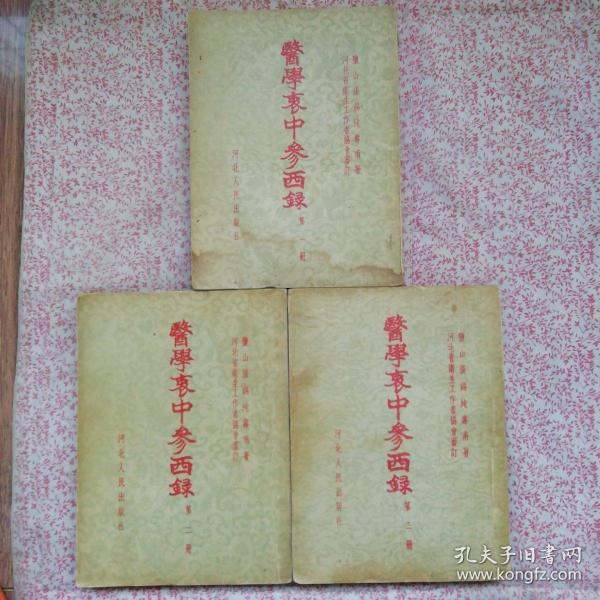 鹽山張錫純壽甫著
河北省衛生工作者協會審訂
醫學衷中參西録
第一冊
河北人民出版社
鹽山張錫純壽甫著
河北省衛生工作者協會審訂
醫學衷中參西録
第二冊
河北人民出版社
鹽山張錫純壽甫著
河北省衛生工作者協會審訂
醫學衷中參西録
第三冊
河北人民出版社
孔夫子旧書网
www.kongfz.com